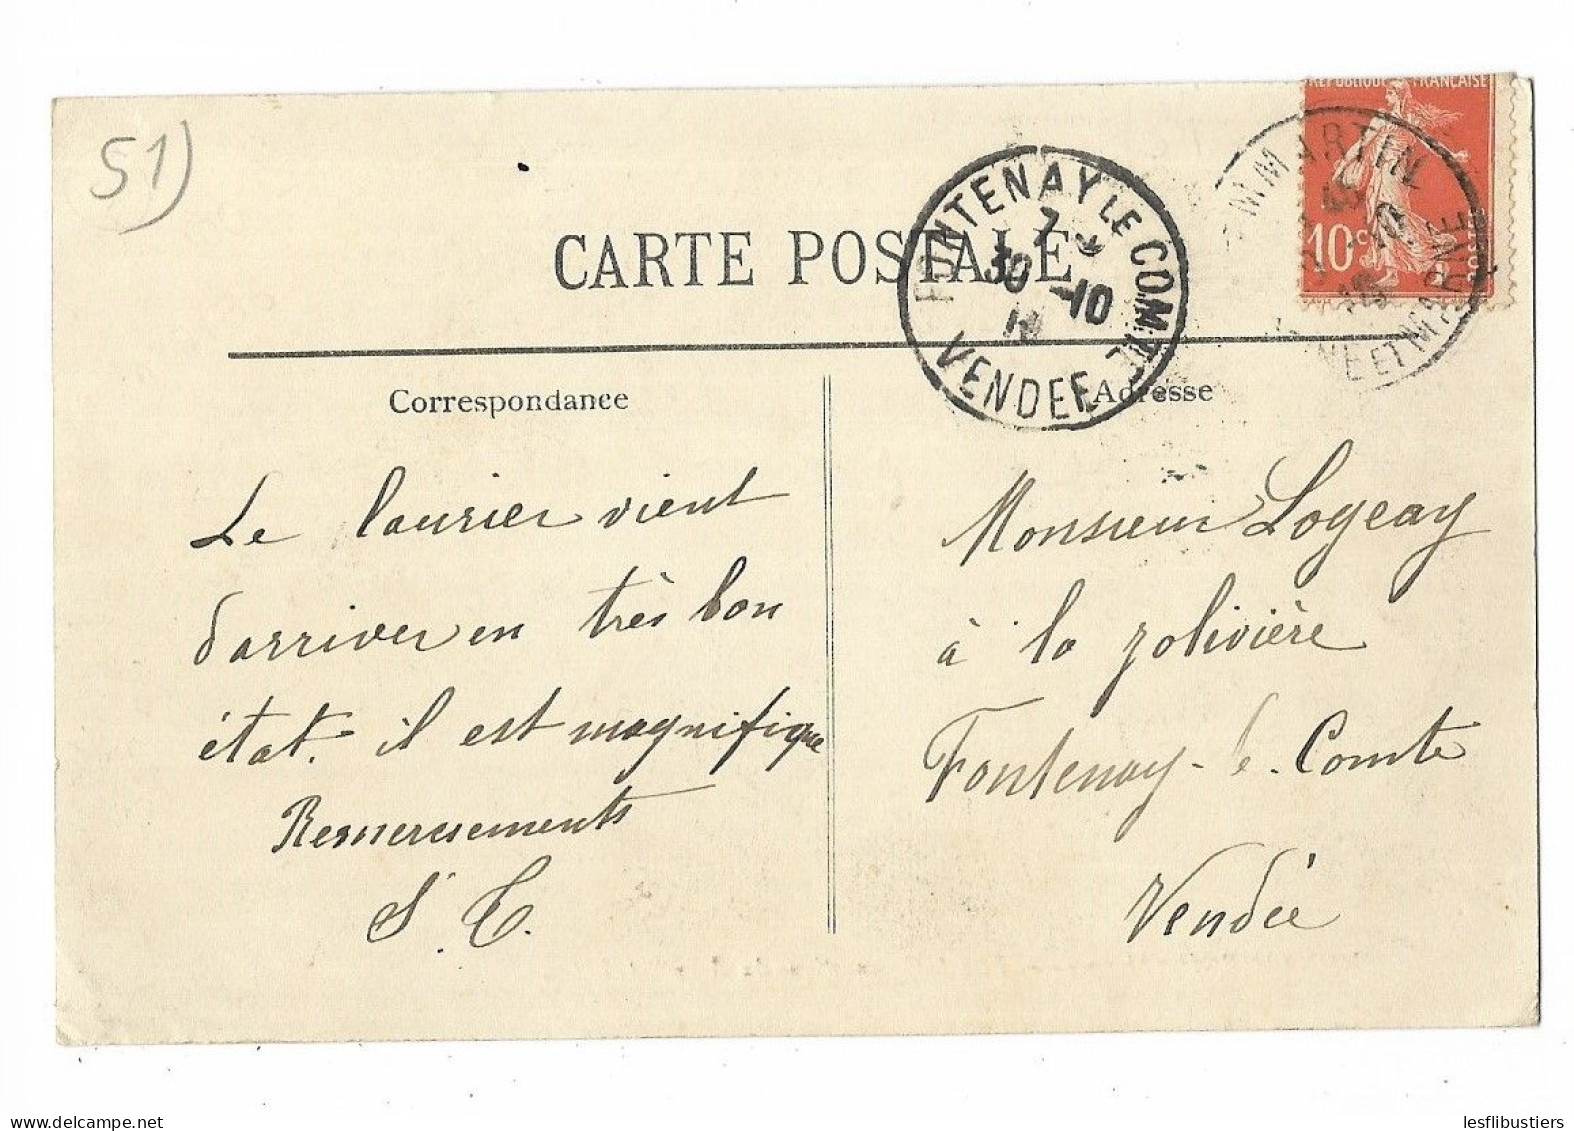 51)
RÉPUBLIQUE FRANÇAISE
10 c
MMARTIN
ET MARNE
FONTENAY LE COMTE
7
30 -10
VENDEE
CARTE POSTALE
Correspondance
Adresse
Le laurier vient
d'arriver en très bon
état. il est magnifique
Remerciements
S. C.
Monsieur Logeay
à la jolivière
Fontenay-le-Comte
Vendée
lesflibustiers
delcampe.net